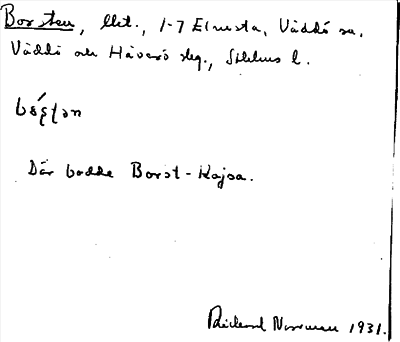 Borsten, lht., 1-7 Elmsta, Väddö sn,
Väddö och Häverö slg., Sthlms l.
Där bodde Borst-Kajsa.
Rickard Norrman 1931.